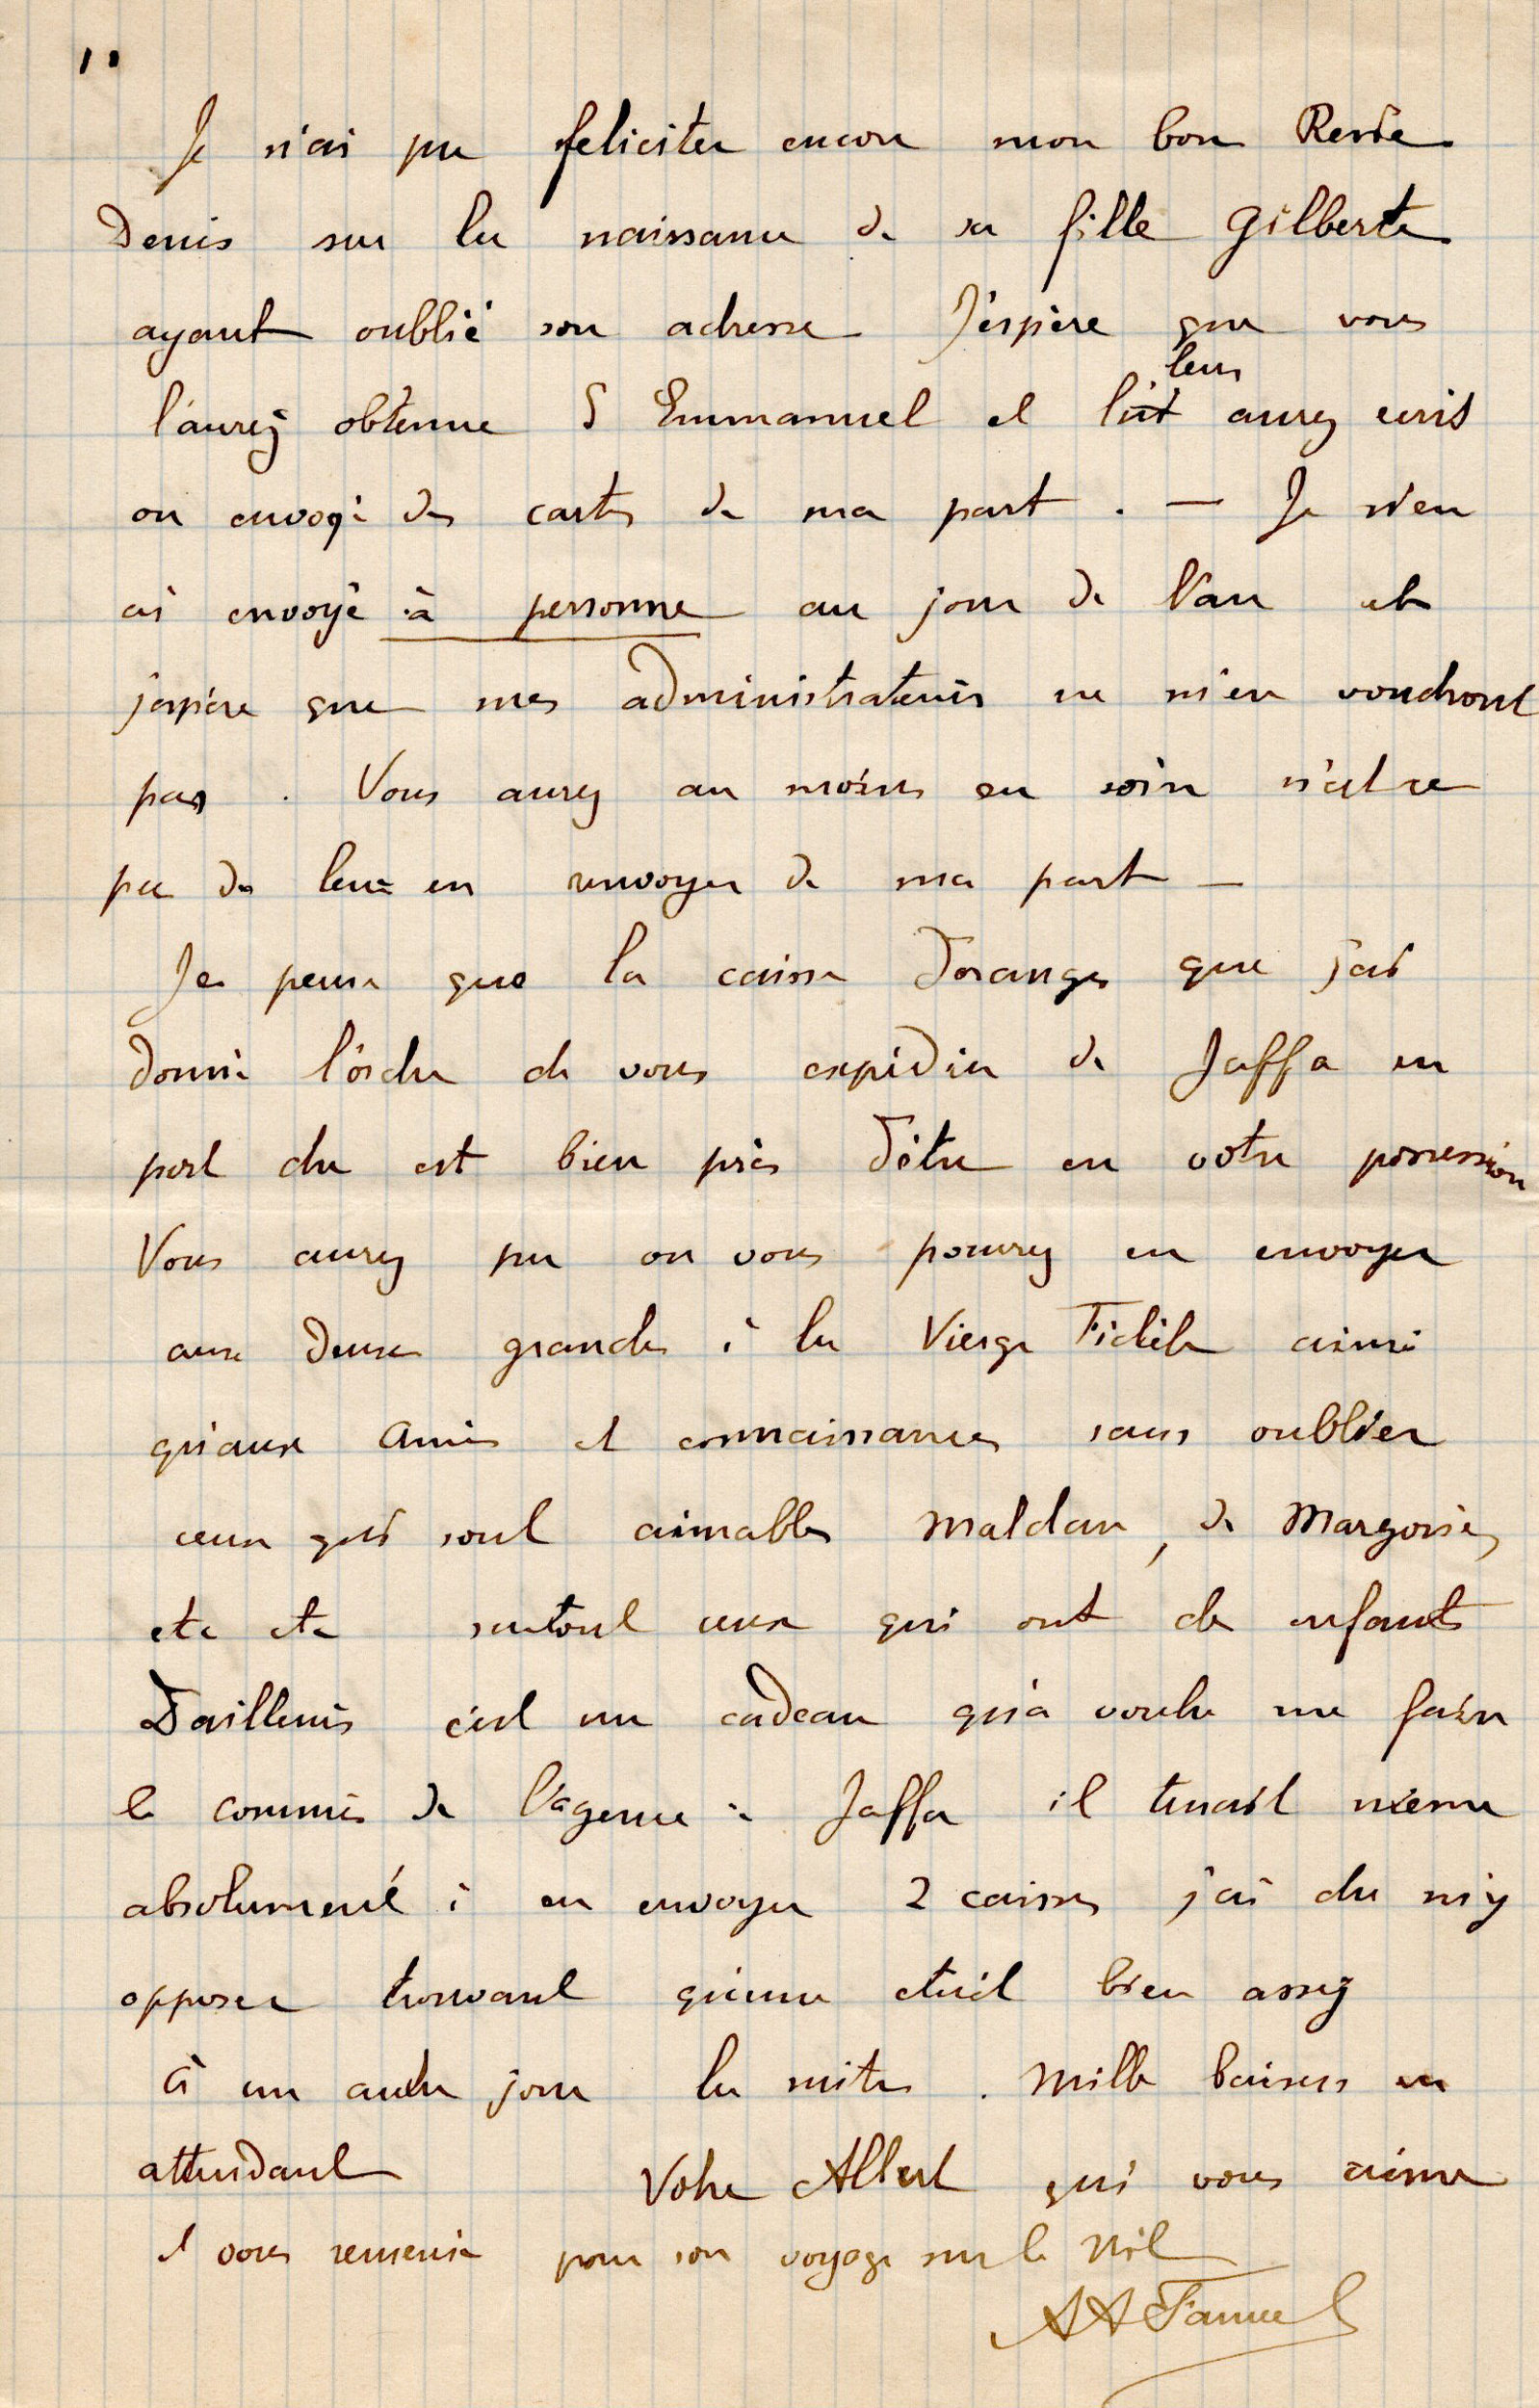 11
Je n'ai pu feliciter encore mon bon
Denis sur la naissance de sa fille Gilberte
ayant oublié son adresse J'espère que vous
leur
l'aurez obtenue d'Emmanuel et aurez ecrit
ou envoyé des cartes de ma part . — Je n'en
ai envoyé à personne au jour de l'an et
j'espère que mes administrateurs ne m'en voudront
pas . Vous aurez au moins eu soin n'est ce
pas de leur en renvoyer de ma part —
Je pense que la caisse d'oranges que j'ai
donné l'ordre de vous expédier de Jaffa en
port du est bien près d'être en votre possession
Vous aurez pu ou vous pourrez en envoyer
aux deux grandes à la Vierge Fidèle ainsi
qu'aux amis et connaissances sans oublier
ceux qui sont aimables Maldan, de
etc etc surtout ceux qui ont des enfants
D'ailleurs c'est un cadeau qu'a voulu me faire
le commis de l'agence à Jaffa il tenait même
absolument à en envoyer 2 caisses j'ai du m'y
opposer trouvant qu'une était bien assez
à un autre jour la suite . Mille baisers en
attendant Votre Albert qui vous aime
et vous remercie pour son voyage sur le Nil